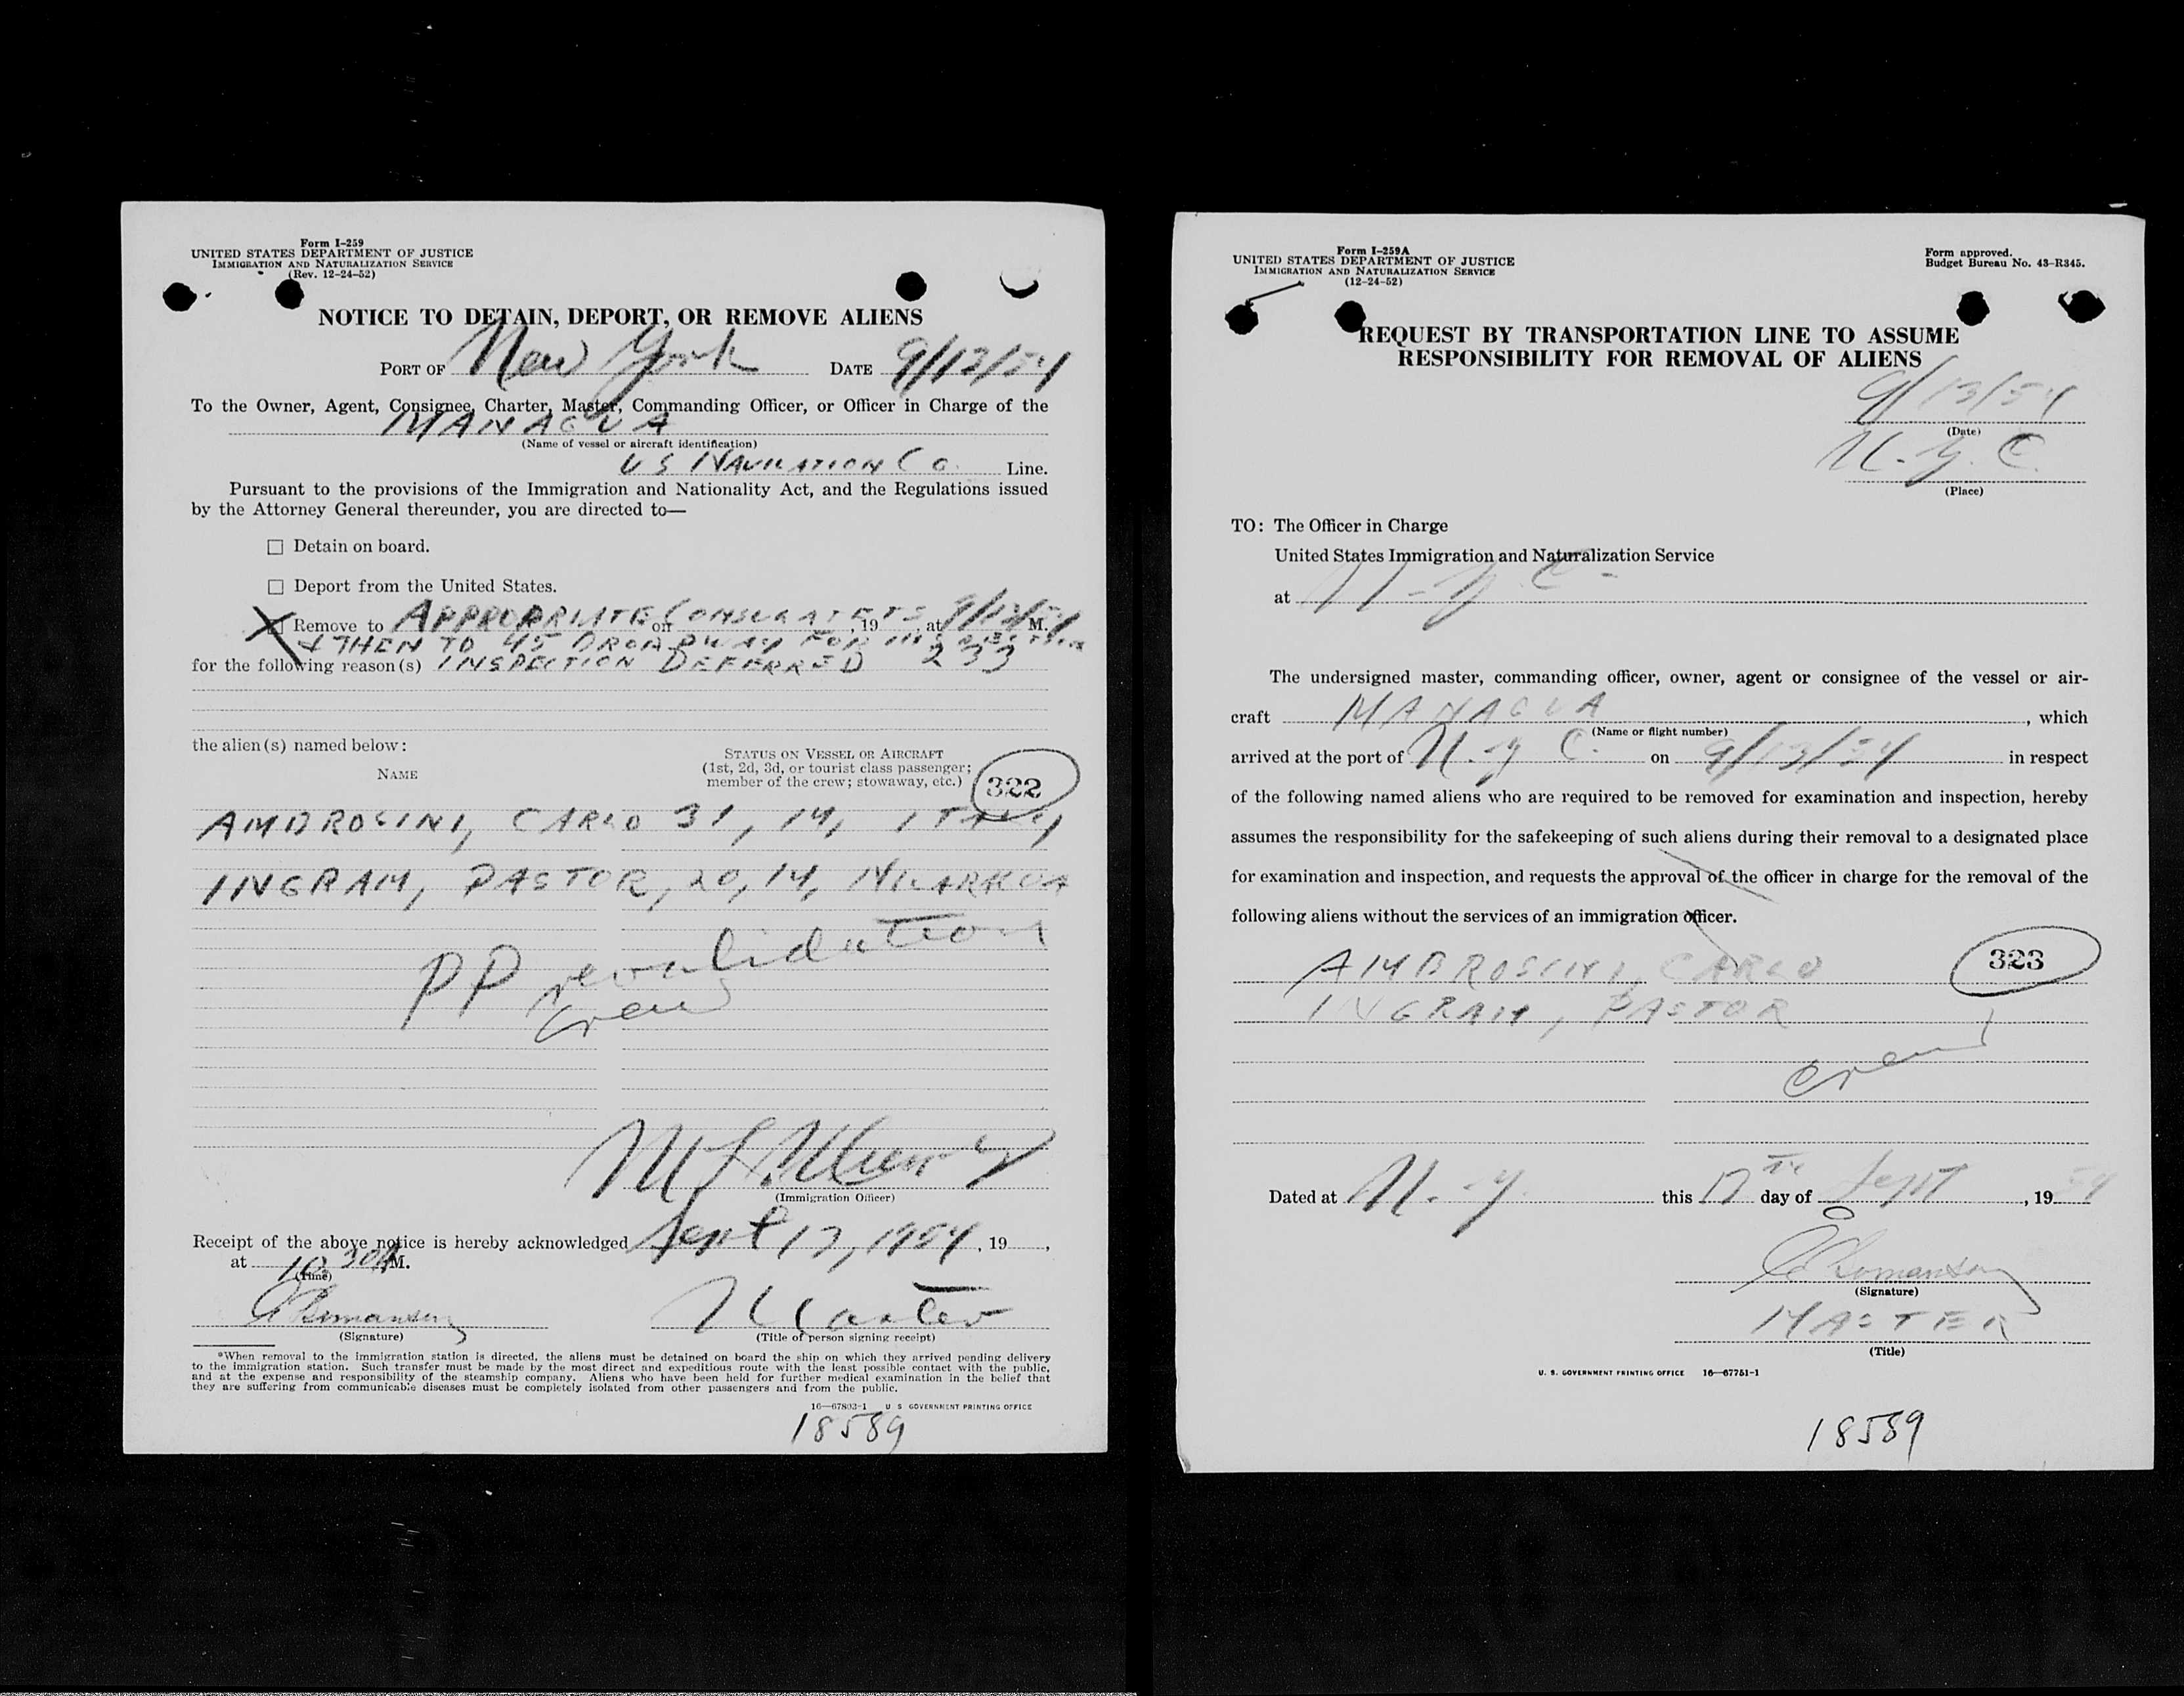 Form I-259
UNITED STATES DEPARTMENT OF JUSTICE
IMMIGRATION AND NATURALIZATION SERVICE
(Rev. 12-24-52)
NOTICE TO DETAIN, DEPORT, OR REMOVE ALIENS
PORT OF New York DATE 9/13/54
To the Owner, Agent, Consignee, Charter, Master, Commanding Officer, or Officer in Charge of the
MANAGUA
(Name of vessel or aircraft identification)
US NAVIGATION Co. Line.
Pursuant to the provisions of the Immigration and Nationality Act, and the Regulations issued
by the Attorney General thereunder, you are directed to—
Detain on board.
Deport from the United States.
Remove to APPROPRIATE CONSULATES on , 19 , at 9/13/54 M.
& THEN TO 45 BROADWAY FOR INSPECTION
for the following reason(s) INSPECTION DEFERRED 233
the alien(s) named below:
NAME
STATUS ON VESSEL OR AIRCRAFT
(1st, 2d, 3d, or tourist class passenger;
member of the crew; stowaway, etc.)
322
AMBROSINI, CARLO 31, M, ITALY
INGRAM, PASTOR, 20, M, NICARAGUA
PP revalidation
crew
(Immigration Officer)
Receipt of the above notice is hereby acknowledged Sept 13, 1954, 19 ,
at 10:30 A M.
(Time)
Master
(Signature)
(Title of person signing receipt)
*When removal to the immigration station is directed, the aliens must be detained on board the ship on which they arrived pending delivery
to the immigration station. Such transfer must be made by the most direct and expeditious route with the least possible contact with the public,
and at the expense and responsibility of the steamship company. Aliens who have been held for further medical examination in the belief that
they are suffering from communicable diseases must be completely isolated from other passengers and from the public.
16—67803-1 U S GOVERNMENT PRINTING OFFICE
18589
Form I-259A
UNITED STATES DEPARTMENT OF JUSTICE
IMMIGRATION AND NATURALIZATION SERVICE
(12-24-52)
Form approved.
Budget Bureau No. 43-R345.
REQUEST BY TRANSPORTATION LINE TO ASSUME
RESPONSIBILITY FOR REMOVAL OF ALIENS
9/13/54
(Date)
N.Y.C.
(Place)
TO: The Officer in Charge
United States Immigration and Naturalization Service
at N.Y.C.
The undersigned master, commanding officer, owner, agent or consignee of the vessel or air-
craft MANAGUA , which
(Name or flight number)
arrived at the port of N.Y.C. on 9/13/54 in respect
of the following named aliens who are required to be removed for examination and inspection, hereby
assumes the responsibility for the safekeeping of such aliens during their removal to a designated place
for examination and inspection, and requests the approval of the officer in charge for the removal of the
following aliens without the services of an immigration officer.
323
AMBROSINI, CARLO
INGRAM, PASTOR
crew
Dated at N.Y. this 13 th day of Sept , 19 54
(Signature)
MASTER
(Title)
U. S. GOVERNMENT PRINTING OFFICE 16—67751-1
18589